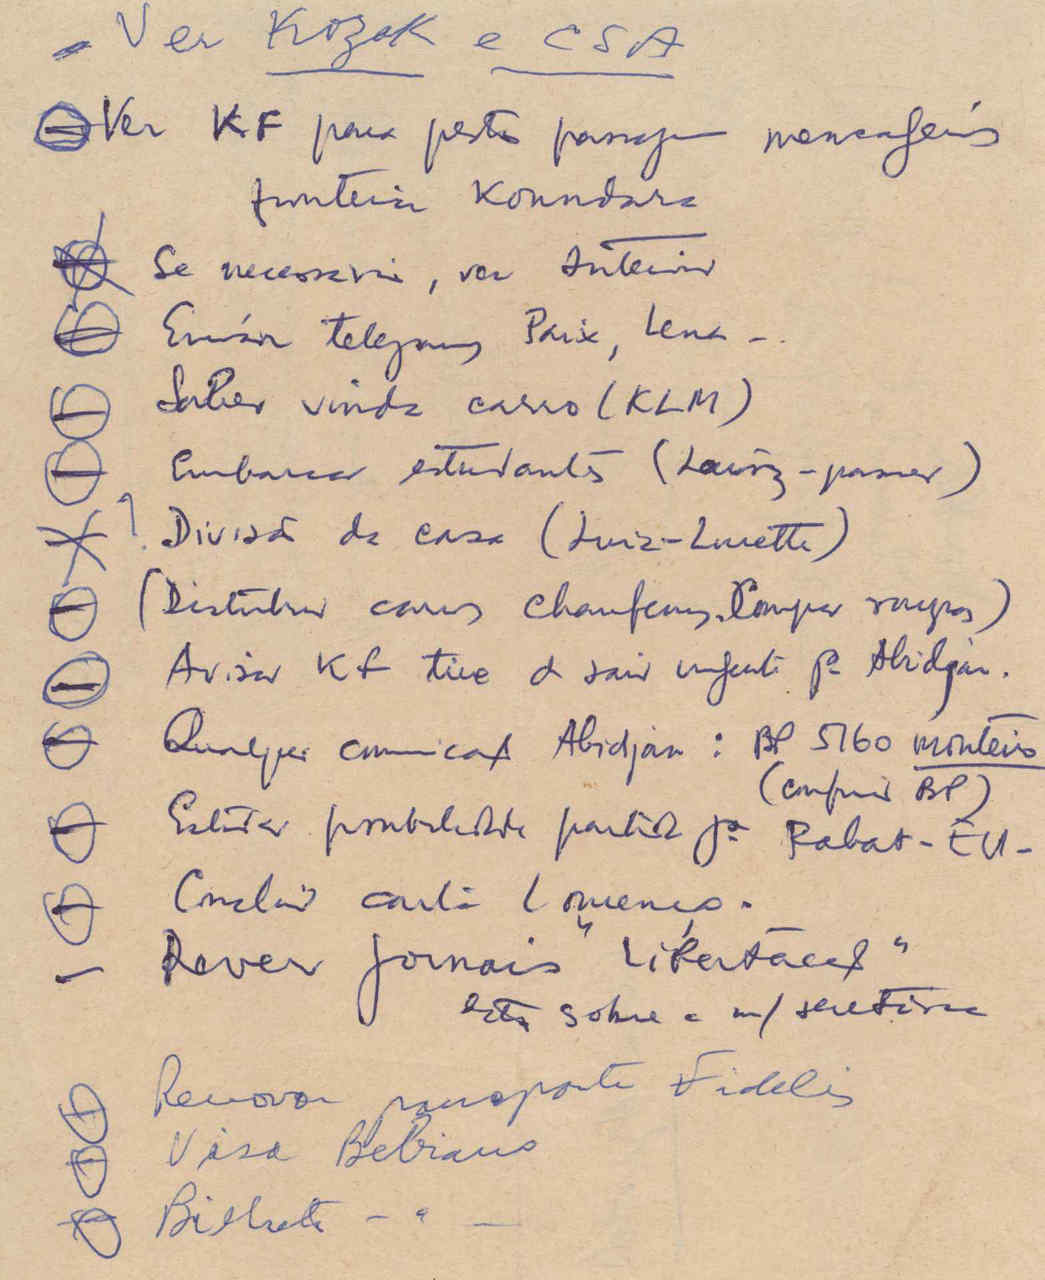 - Ver Kozak e CSA
- Ver KF para passagem mensageiros
fronteira Koundara
Se necessário, ver Interior
Enviar telegramas Paix, Lena -
Saber vinda carro (KLM)
Embarcar estudantes (-passar)
? Divisão da casa (Luiz-Lucette)
(Distribuir carros chauffeurs. Comprar roupas)
Avisar KF tive d sair urgente pª Abidjan.
Qualquer comunicação Abidjan : BP 5160 Monteiro
(confirmar BP)
Estudar possibilidade partida pª Rabat - EU -
Concluir carta Lourenço.
- Rever Jornais "Libertação"
está sobre a m/ secretária
Renovar passaporte Fidelis
Visa Bebiano
Bilhete - " -